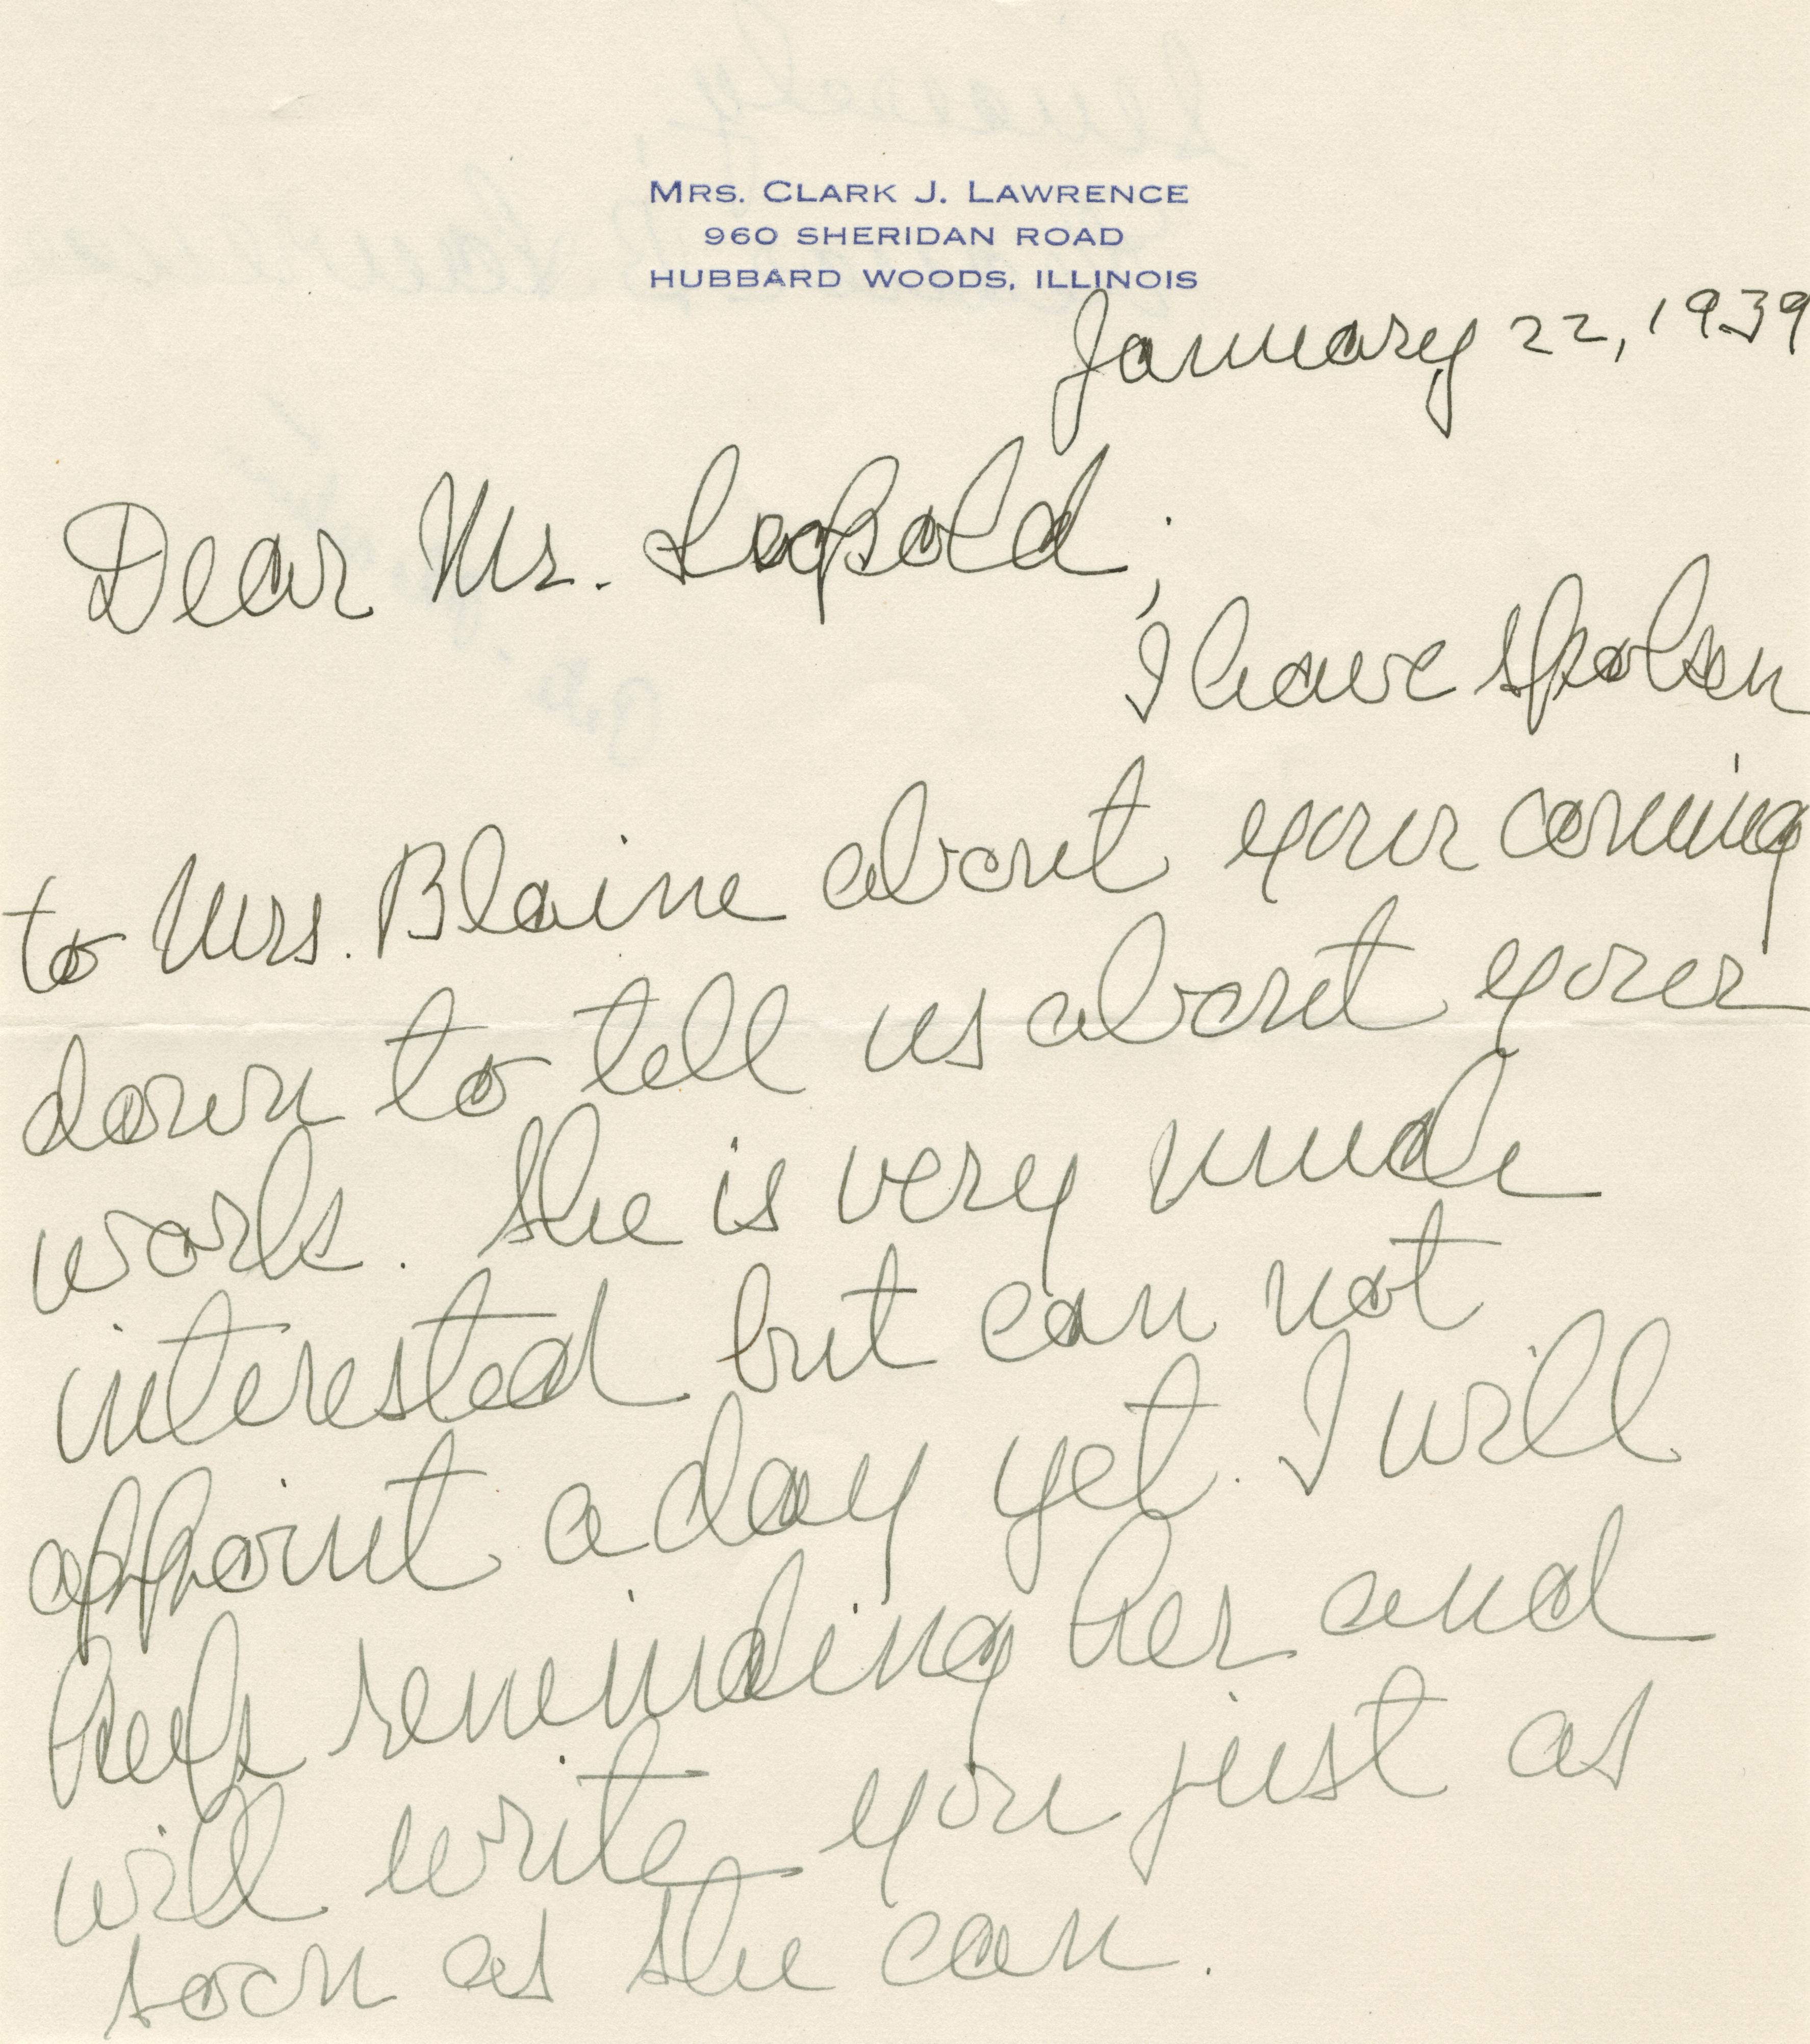 MRS. CLARK J. LAWRENCE
960 SHERIDAN ROAD
HUBBARD WOODS, ILLINOIS
January 22, 1939
Dear Mr. Leopold;
I have spoken
to Mrs. Blaine about your coming
down to tell us about your
work. She is very much
interested but can not
appoint a day yet. I will
keep reminding her and
will write you just as
soon as she can.